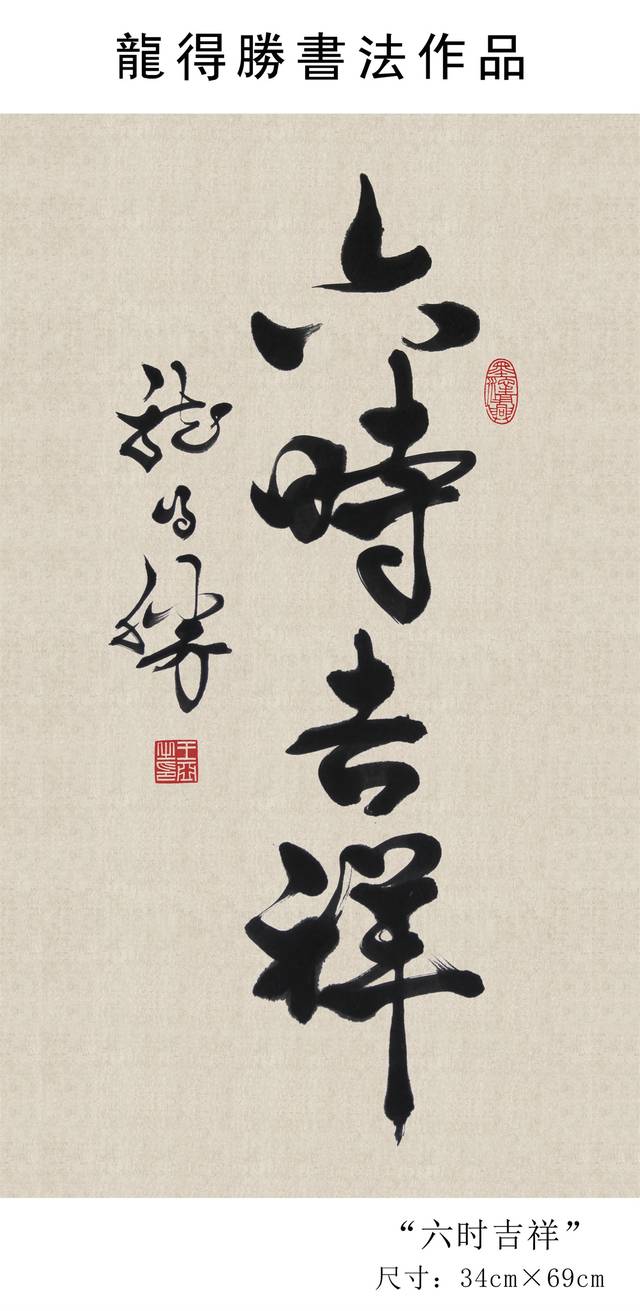 龍得勝書法作品
六時吉祥
龍得勝
“六时吉祥”
尺寸：34cm×69cm